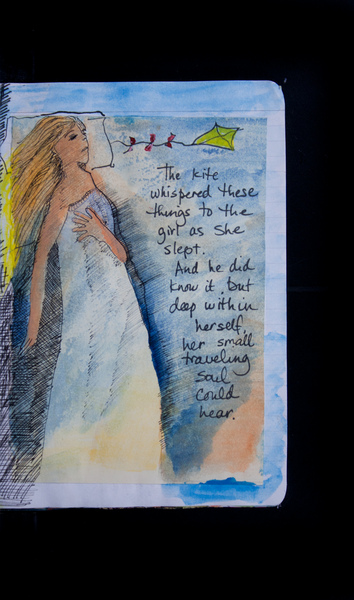 The kite
whispered these
things to the
girl as she
slept.
And he did
know it, but
deep within
herself,
her small
traveling
soul
could
hear.